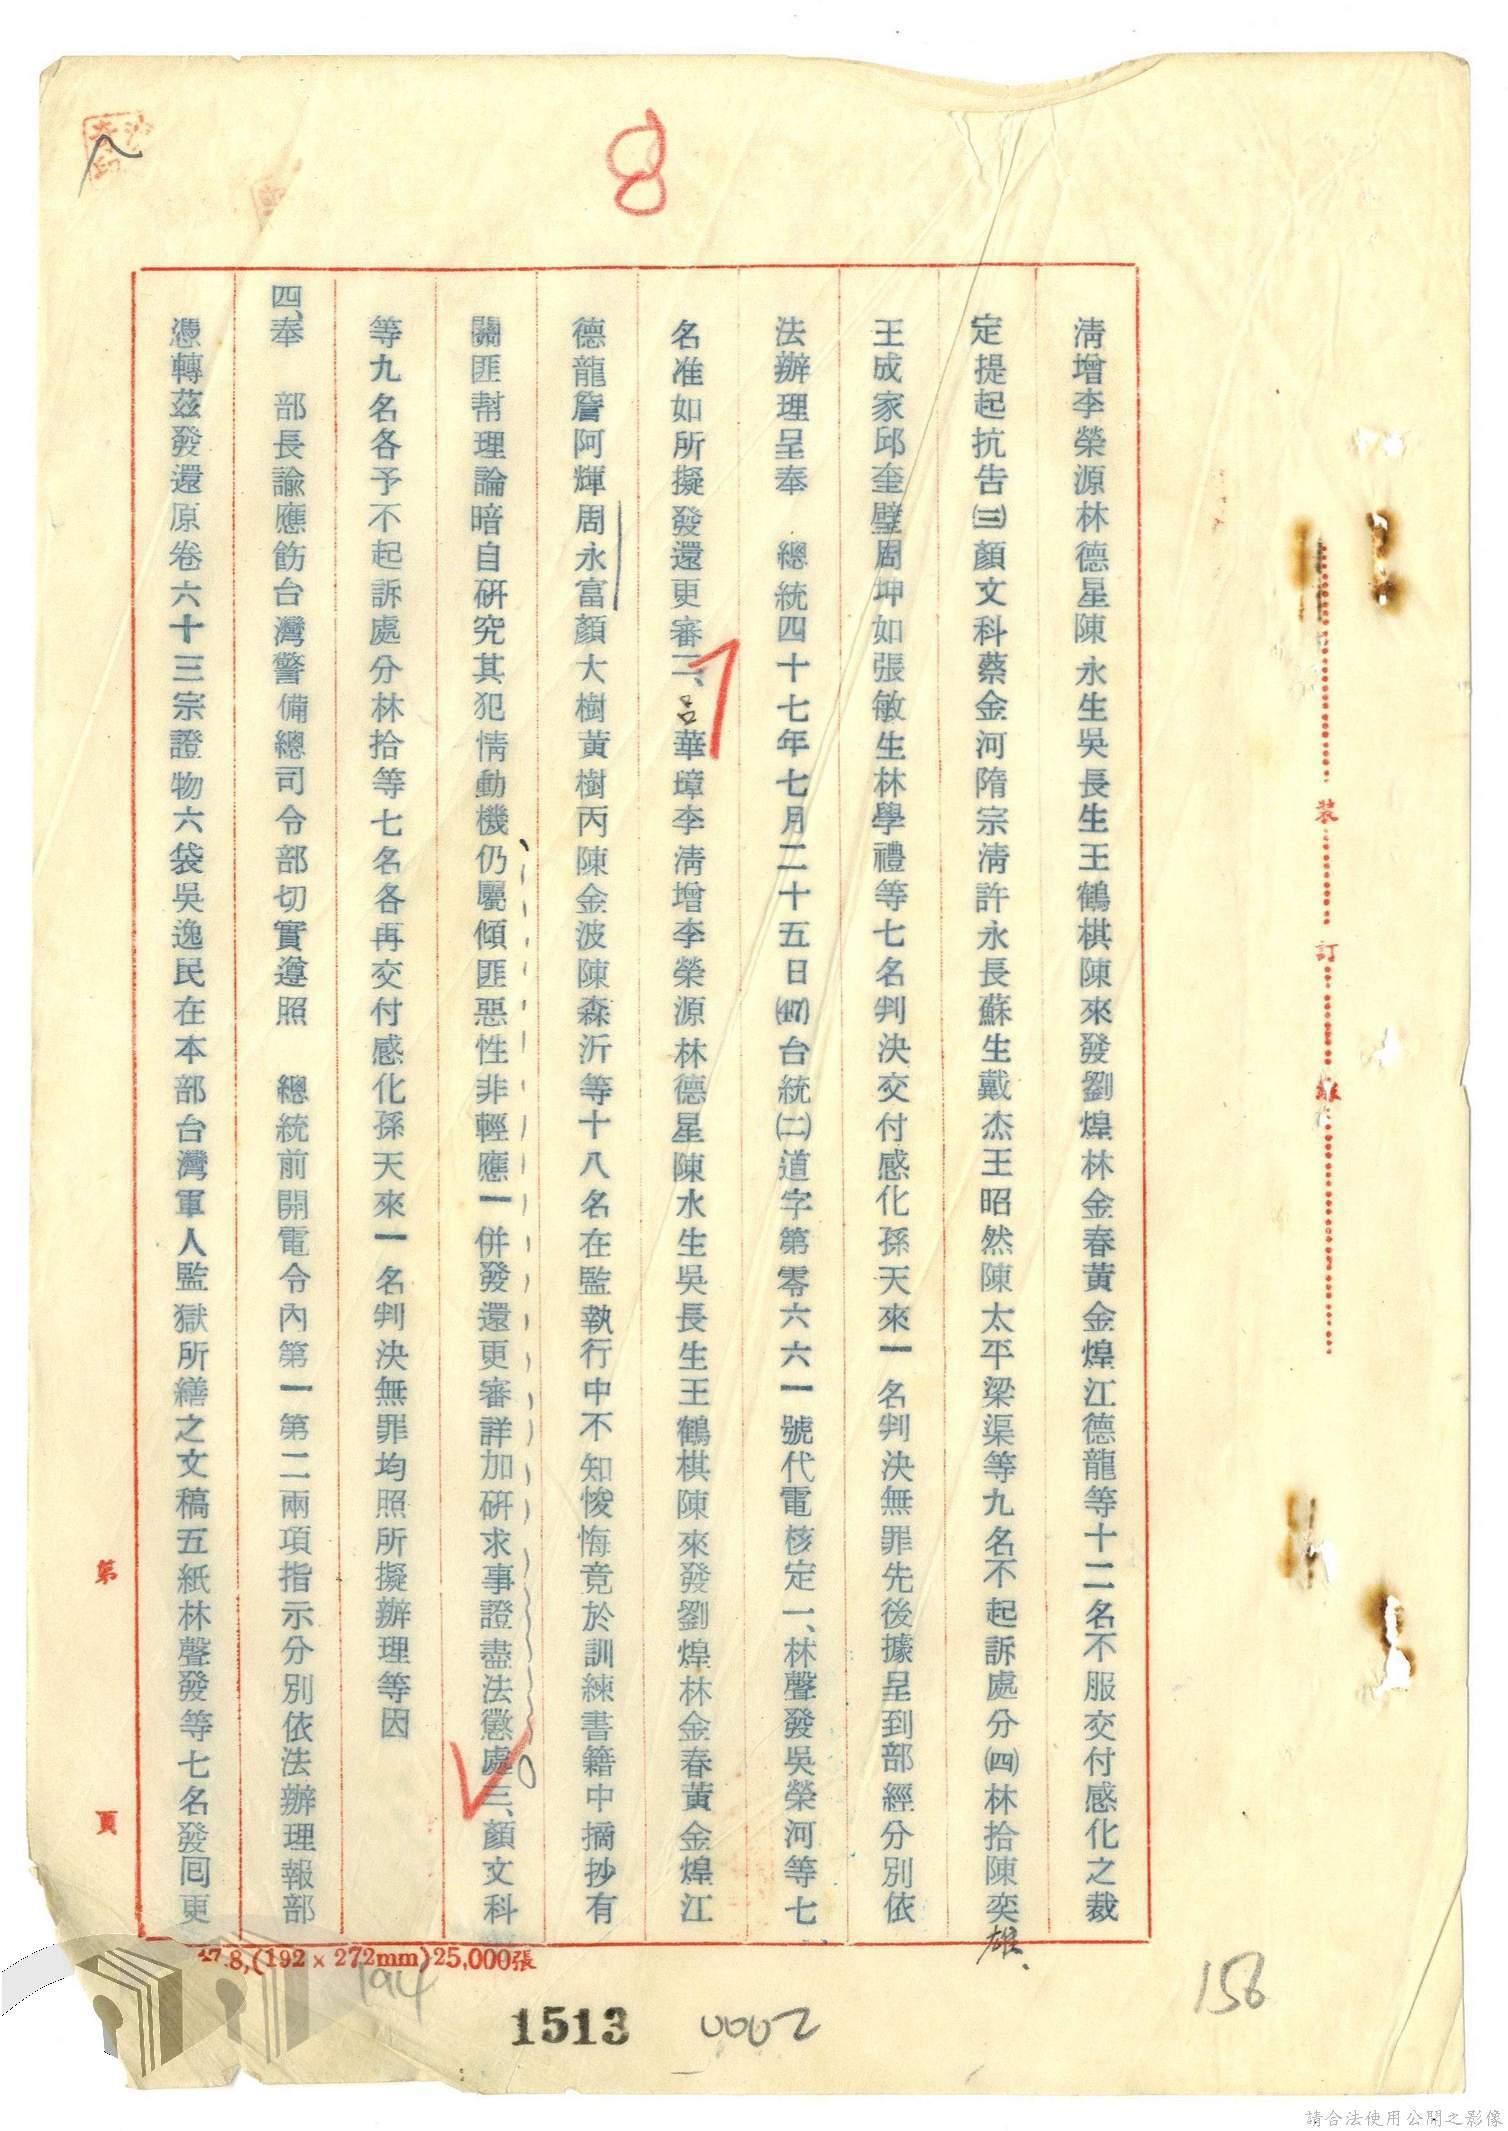 8
清增李榮源林德星陳永生吳長生王鶴棋陳來發劉煌林金春黃金煌江德龍等十二名不服交付感化之裁
定提起抗告㈢顏文科蔡金河隋宗清許永長蘇生戴杰王昭然陳太平梁渠等九名不起訴處分㈣林拾陳奕雄
王成家邱奎璧周坤如張敏生林學禮等七名判決交付感化孫天來一名判決無罪先後據呈到部經分別依
法辦理呈奉　總統四十七年七月二十五日(47)台統㈡道字第零六六一號代電核定一、林聲發吳榮河等七
名准如所擬發還更審二、呂華璋李清增李榮源林德星陳水生吳長生王鶴棋陳來發劉煌林金春黃金煌江
德龍詹阿輝周永富顏大樹黃樹丙陳金波陳森沂等十八名在監執行中不知悛悔竟於訓練書籍中摘抄有
關匪幫理論暗自研究其犯情動機仍屬傾匪惡性非輕應一併發還更審詳加研求事證盡法懲處三、顏文科
等九名各予不起訴處分林拾等七名各再交付感化孫天來一名判決無罪均照所擬辦理等因
四、奉　部長諭應飭台灣警備總司令部切實遵照　總統前開電令內第一第二兩項指示分別依法辦理報部
憑轉茲發還原卷六十三宗證物六袋吳逸民在本部台灣軍人監獄所繕之文稿五紙林聲發等七名發回更
裝
訂
線
第
頁
47.8,(192×272mm)25,000張
194
1513
0002
156
請合法使用公開之影像